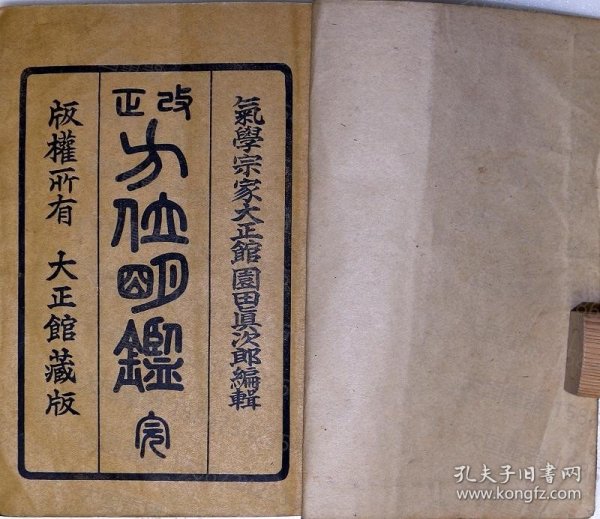 氣學宗家大正館園田眞次郎編輯
改正
方位明鑑 完
版權所有 大正館藏版
孔夫子旧书网
www.kongfz.com